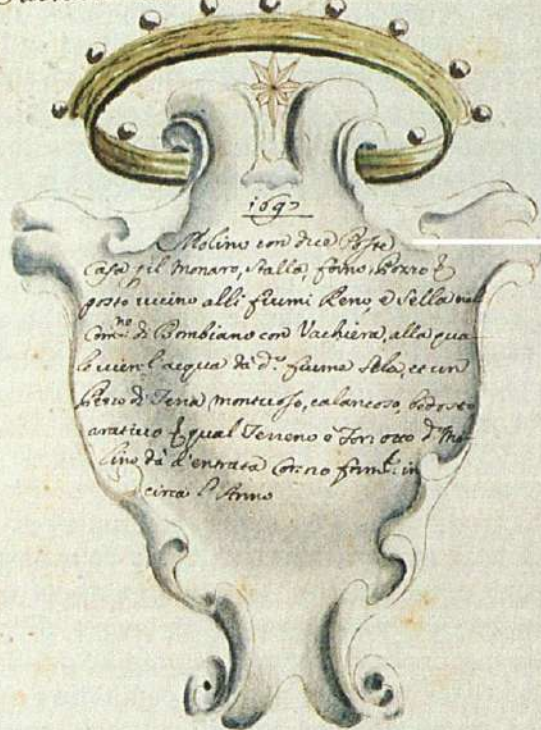 1697
Molino con due Poste
Casa p il Monaro, stalla, forno, Pozzo &
posto vicino alli fiumi Reno, e Sella nel
Com.no di Bombiano con Vachiera, alla qua
le vien l'acqua da d.o fiume Sela, et un
Pezo di Terra montuoso, calancoso, bodosto
arativo qual Terreno e d.o Mo=
lino dà d'entrata in
circa l'Anno